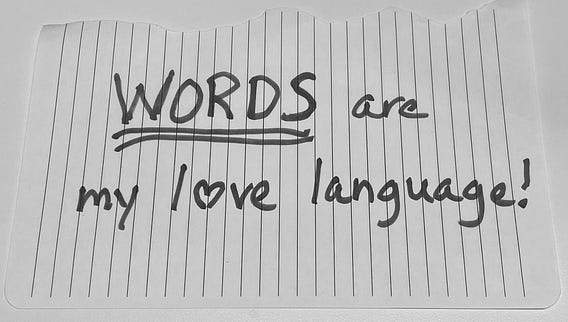 WORDS are
my love language!